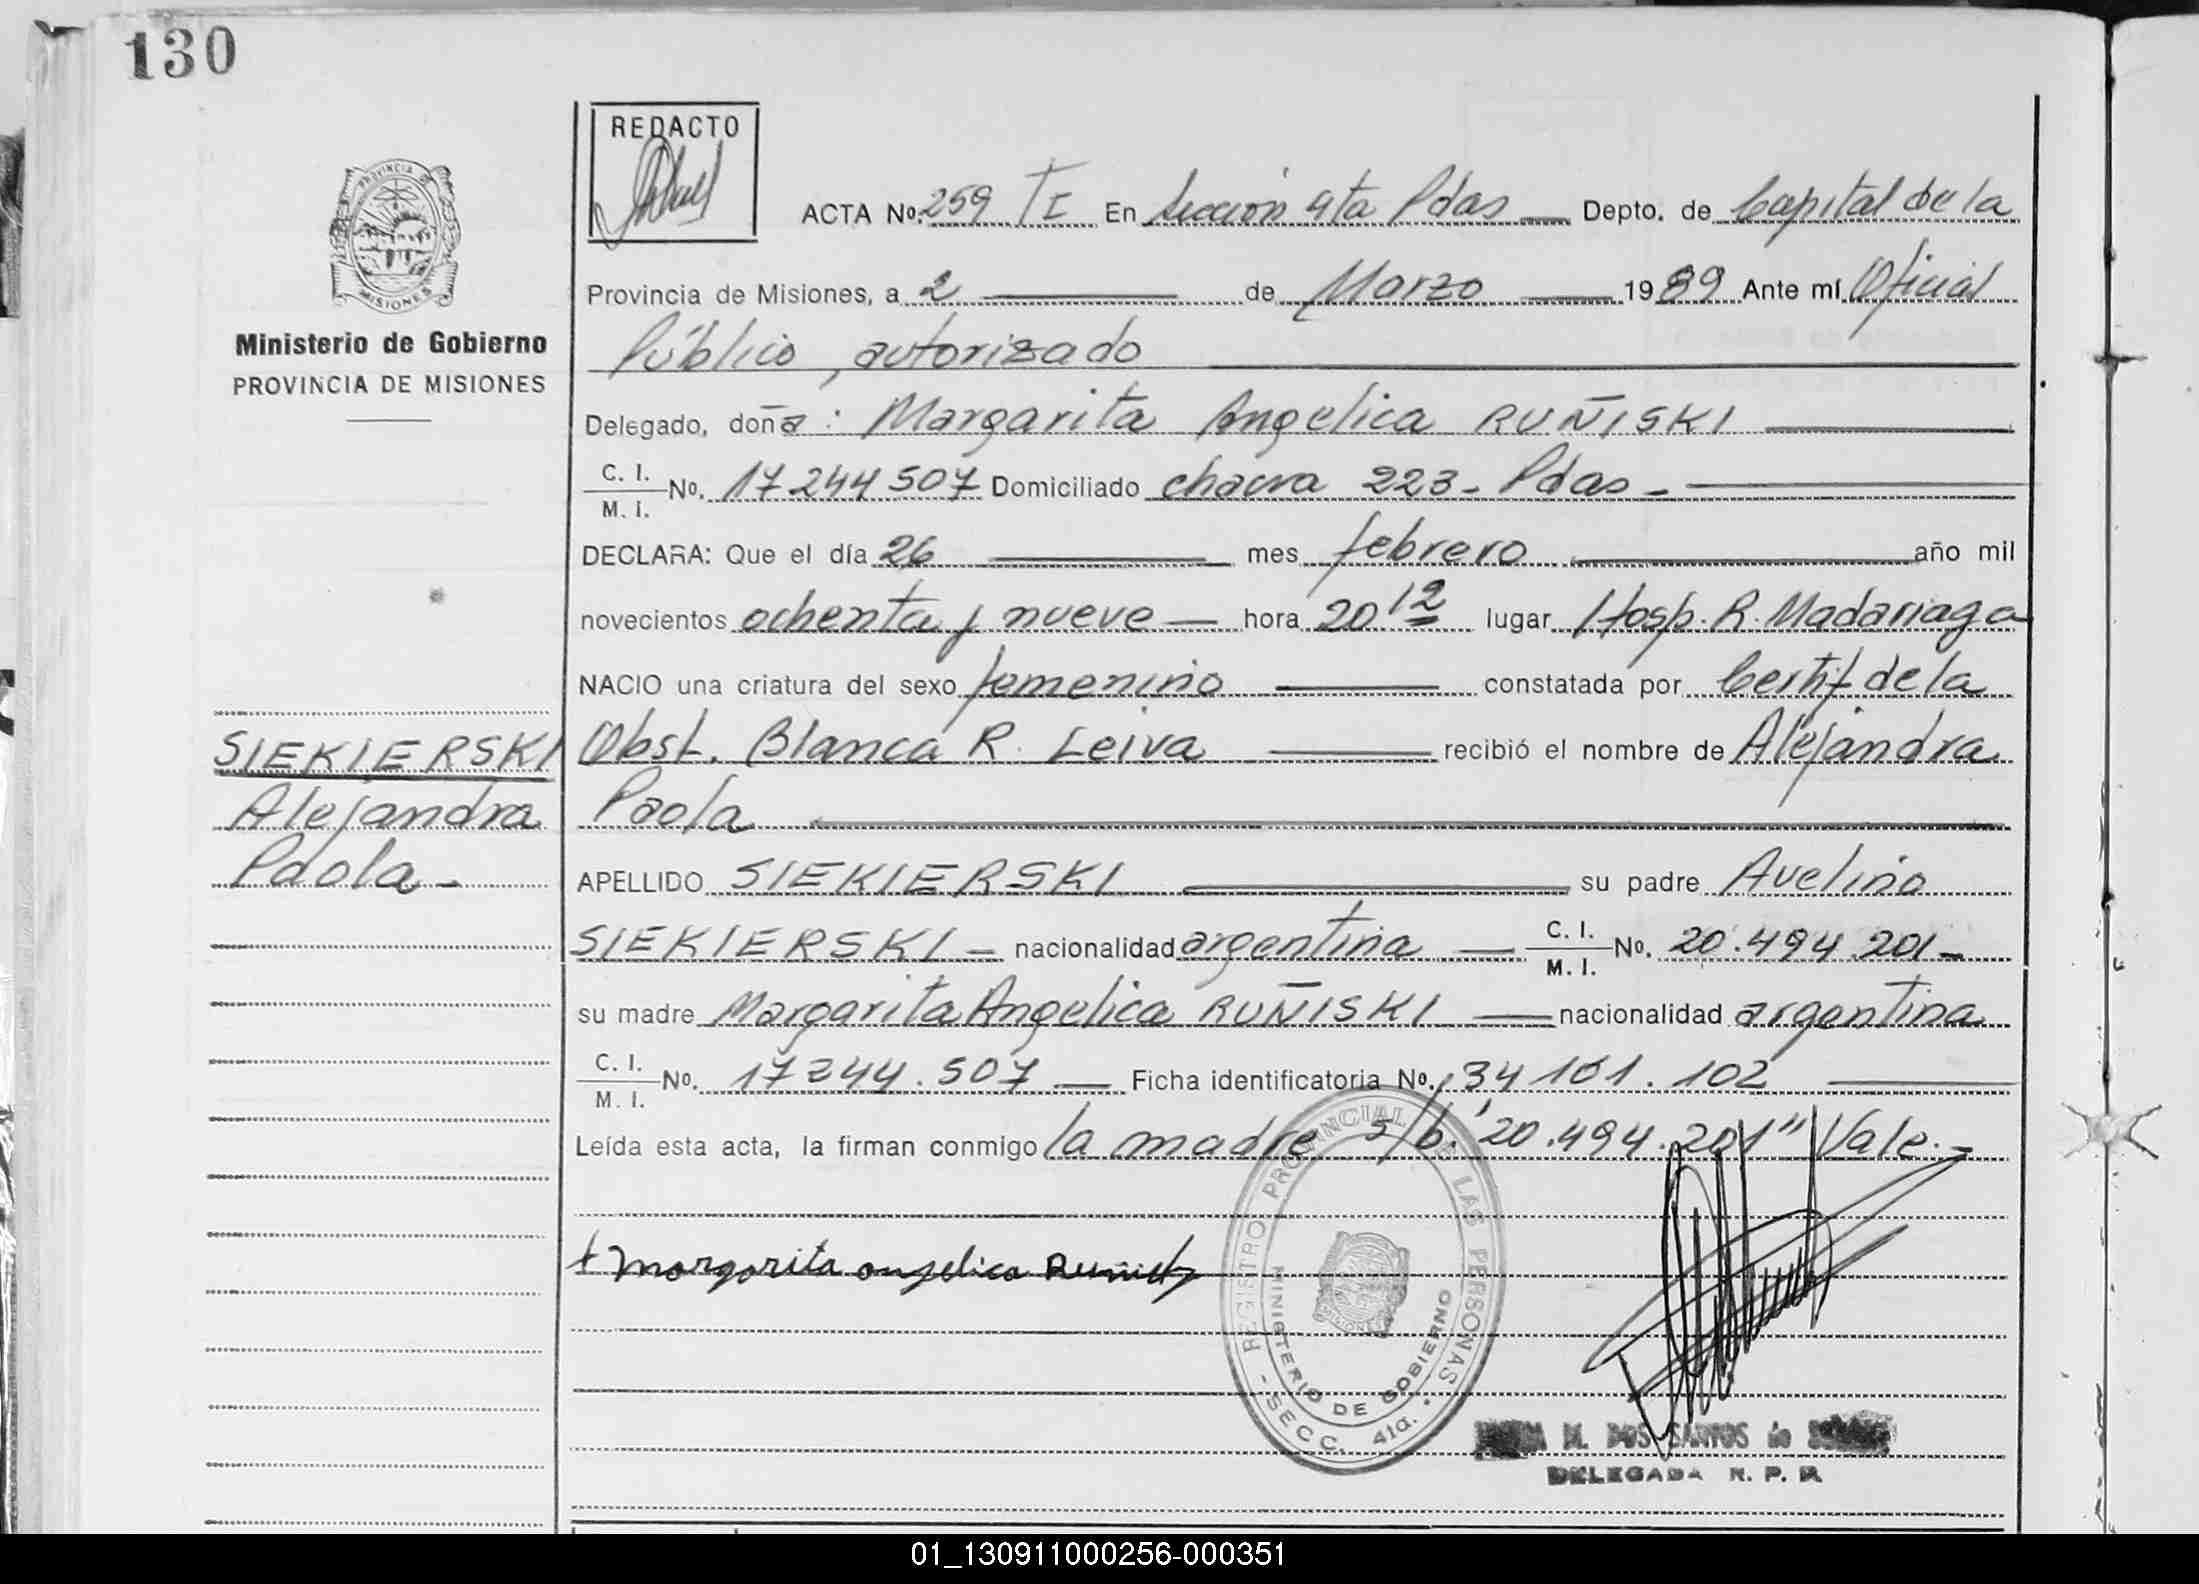 130
REDACTO
ACTA No. 259 TI En Sección 4ta Pdas Depto. de Capital de la
PROVINCIA DE
MISIONES
Provincia de Misiones, a 2 de Marzo 1989 Ante mí Oficial
Ministerio de Gobierno
PROVINCIA DE MISIONES
Público, autorizado
Delegado, doña: Margarita Angelica RUÑISKI
C. I.
M. I. No. 17244507 Domiciliado chacra 223- Pdas-
DECLARA: Que el día 26 mes febrero año mil
novecientos ochenta y nueve hora 20 12 lugar Hosp. R. Madariaga
NACIO una criatura del sexo femenino constatada por Certif de la
SIEKIERSKI
Obst. Blanca R. Leiva recibió el nombre de Alejandra
Alejandra
Paola
Paola-
APELLIDO SIEKIERSKI su padre Avelino
SIEKIERSKI- nacionalidad argentina C. I. M. I. No. 20.494.201-
su madre Margarita Angelica RUÑISKI nacionalidad argentina
C. I.
M. I. No. 17244.507 Ficha identificatoria No. 34 101.102
Leída esta acta, la firman conmigo la madre s/b. "20.494.201" Vale.-
Margarita angelica
REGISTRO PROVINCIAL DE LAS PERSONAS
MINISTERIO DE GOBIERNO
MISIONES
- SECC. 4ta. -
M. DOS SANTOS de
DELEGADA R. P. P.
01_130911000256-000351